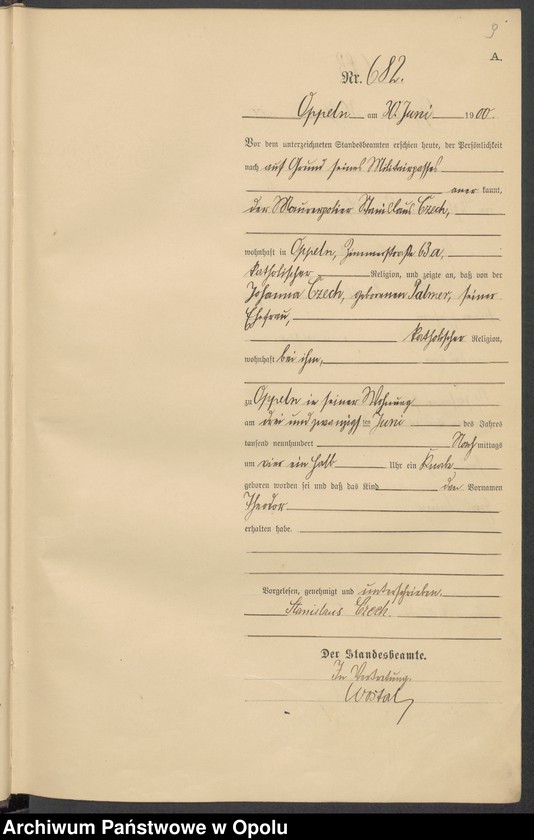 9
A.
Nr. 682.
Oppeln am 30. Juni 1900.
Vor dem unterzeichneten Standesbeamten erschien heute, der Persönlichkeit
nach auf Grund seines Militairpasses
aner kannt,
der Maurerpolier Stanislaus Czech,
wohnhaft in Oppeln, Zimmerstraße 63a,
katholischer Religion, und zeigte an, daß von der
Johanna Czech, geborenen Palmer, seiner
Ehefrau,
katholischer Religion,
wohnhaft bei ihm,
zu Oppeln in seiner Wohnung
am drei und zwanzigsten Juni des Jahres
tausend neunhundert Nachmittags
um vier ein halb Uhr ein Knabe
geboren worden sei und daß das Kind den Vornamen
Theodor
erhalten habe.
Vorgelesen, genehmigt und unterschrieben.
Stanislaus Czech.
Der Standesbeamte.
In Vertretung
Wostal
Archiwum Państwowe w Opolu